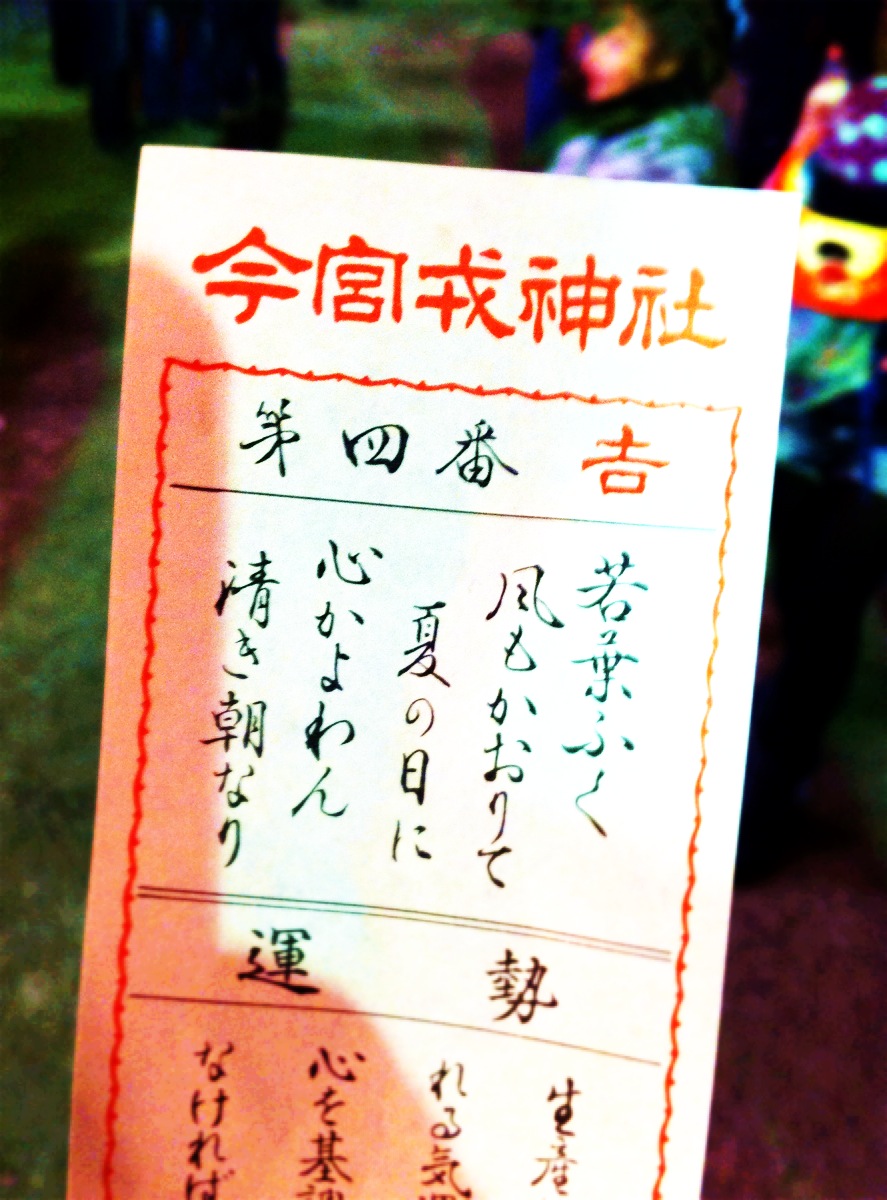 今宮戎神社
第四番 吉
若葉ふく
風もかおりて
夏の日に
心かよわん
清き朝なり
運勢
生産
れる気
心を基調
なければ